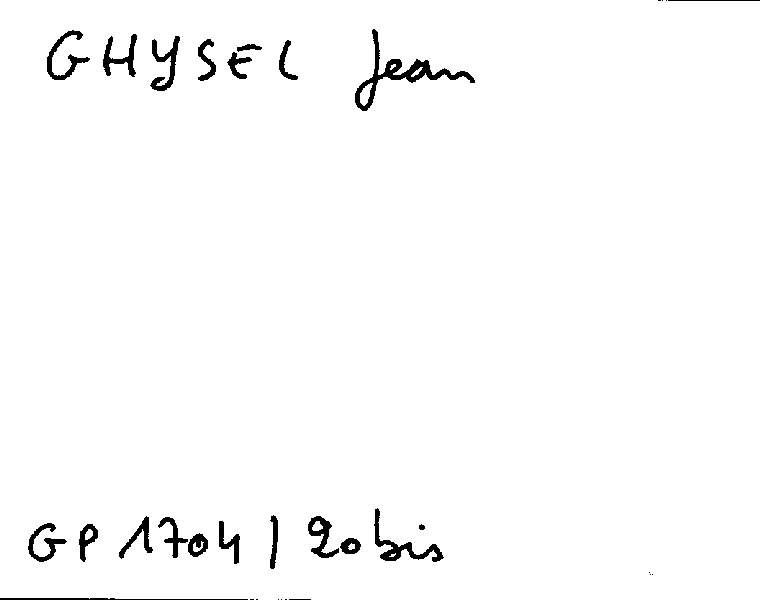 GHYSEL Jean
GP 1704 / 20 bis